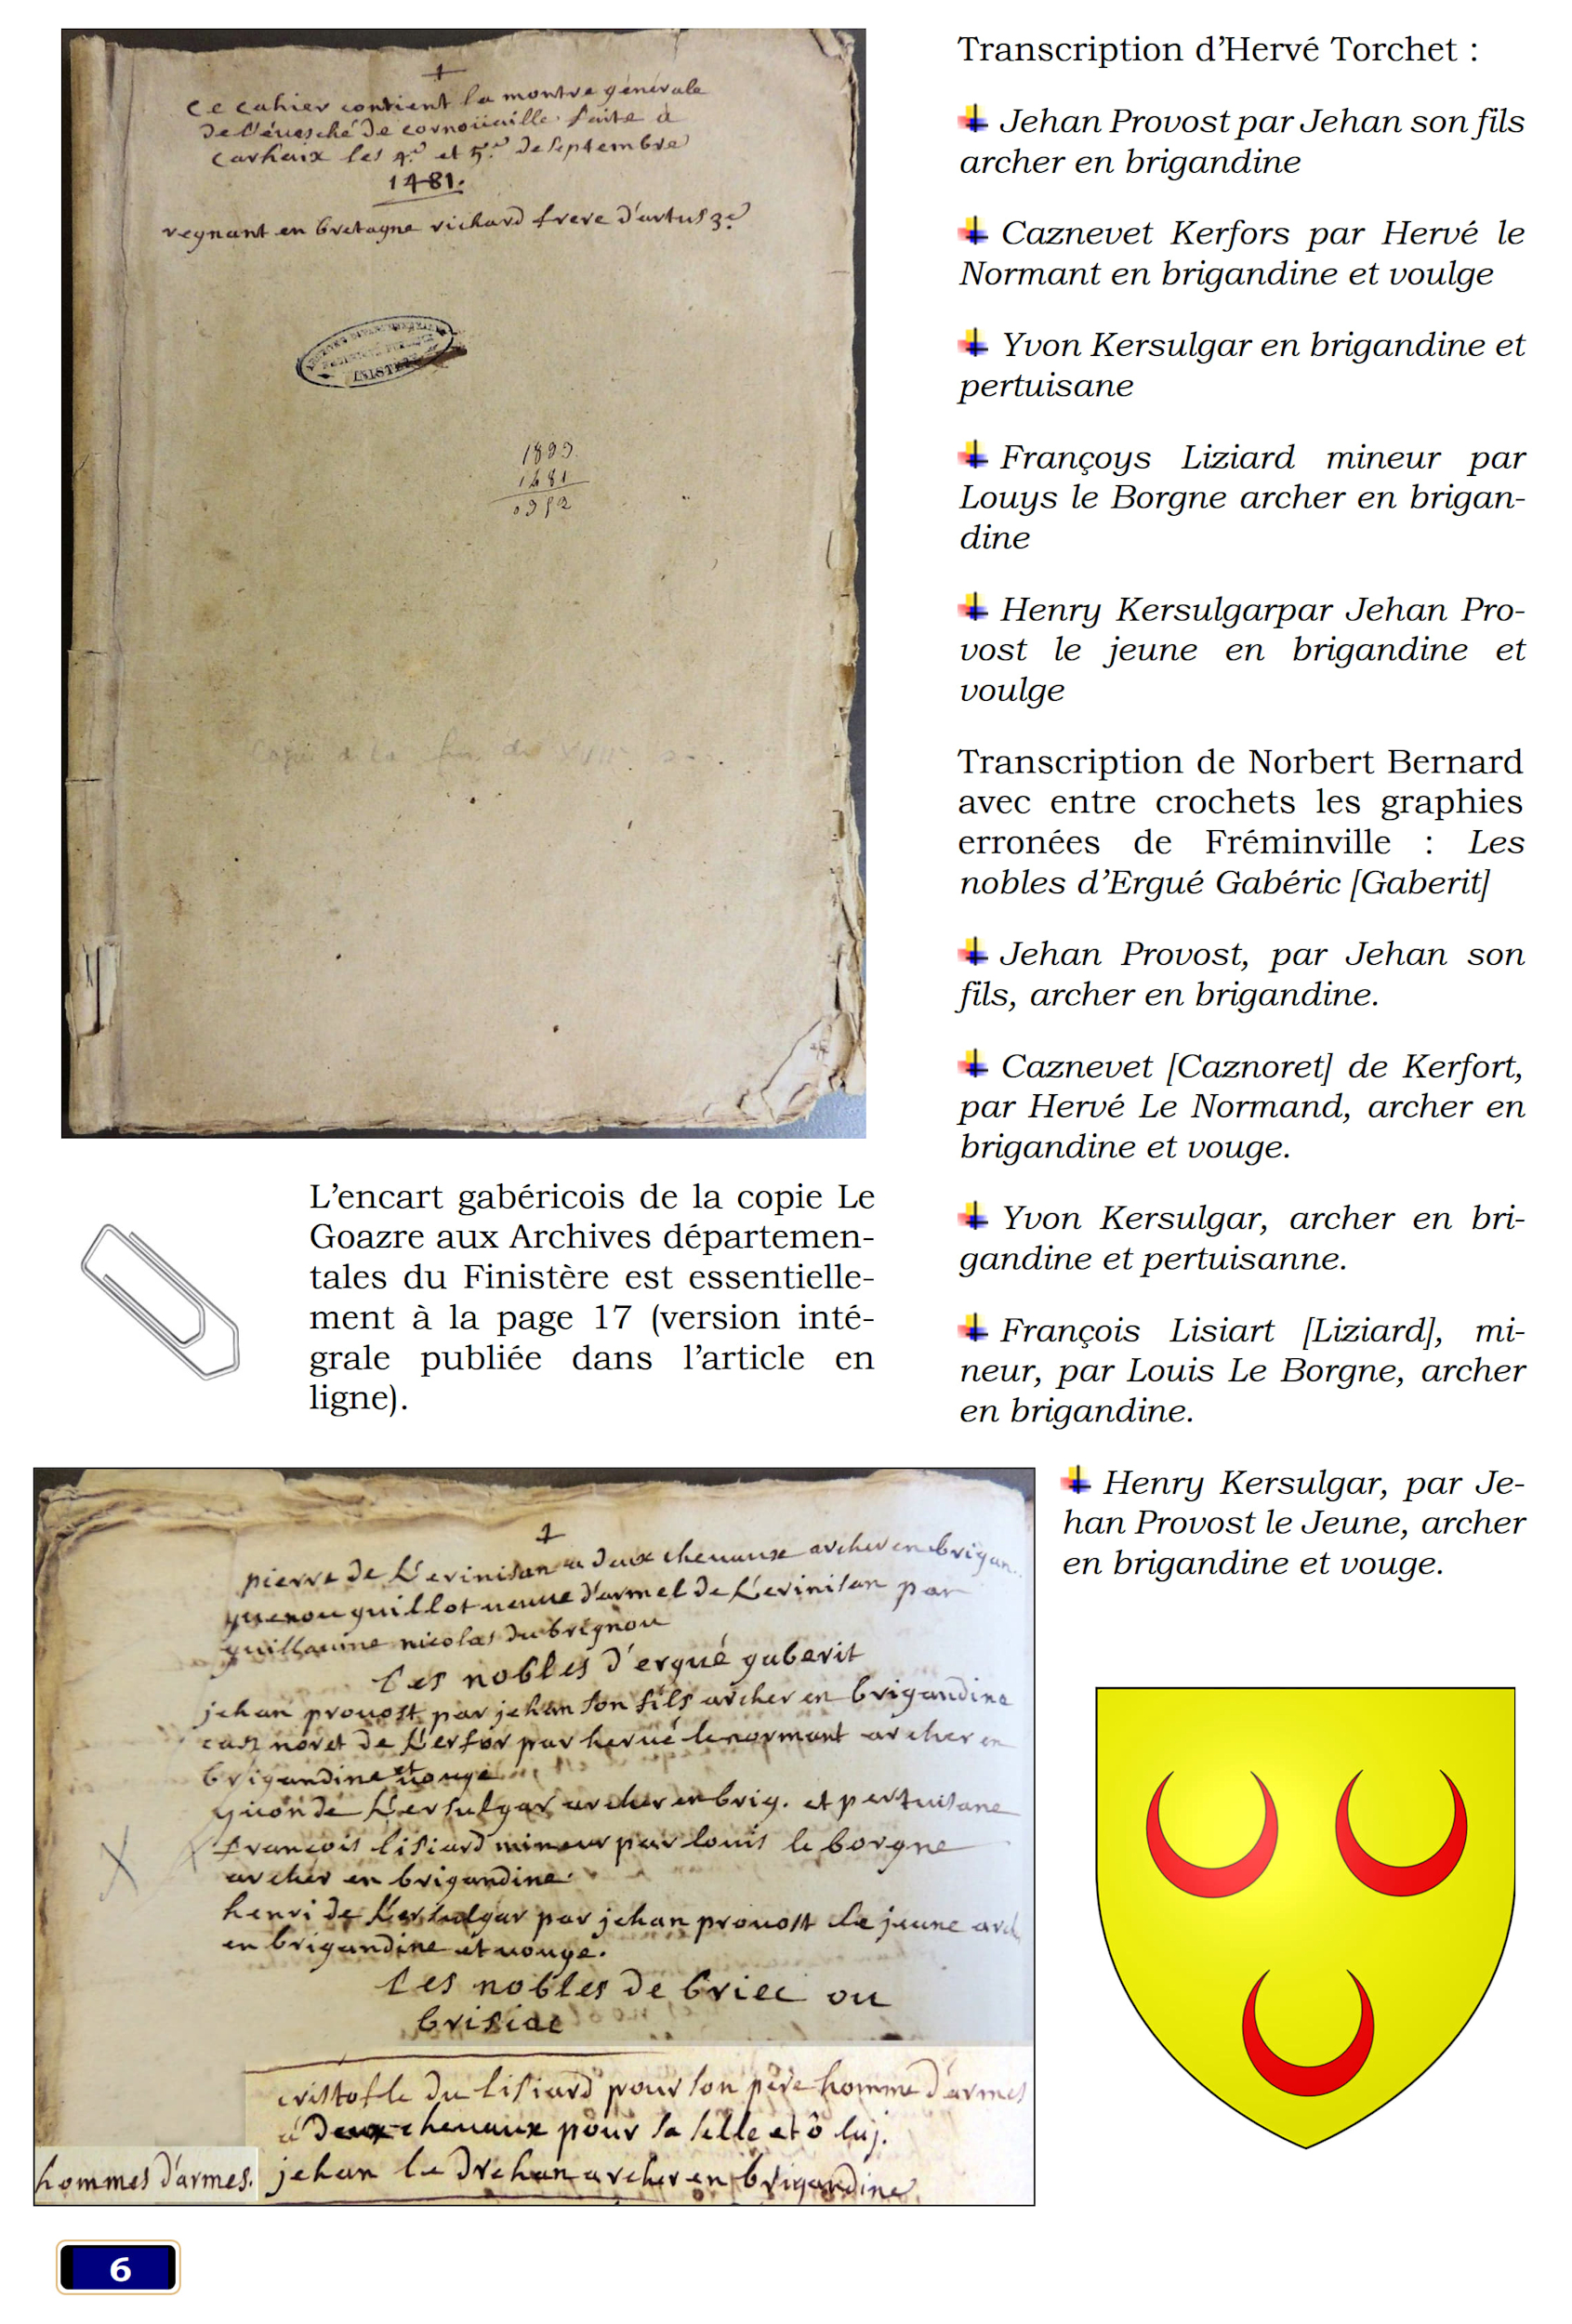 ce cahier contient la montre générale
de l'évesché de cornoüaille faite à
carhaix les 4.e et 5.e de septembre
1481.
regnant en bretagne richard frere d'artus 3.e
INISTE
1481
Copie de la fin du XVIIe s
L'encart gabéricois de la copie Le
Goazre aux Archives départemen-
tales du Finistère est essentielle-
ment à la page 17 (version inté-
grale publiée dans l'article en
ligne).
pierre de Kerinisan a deux chevaux archer en brigan
guillot veuve d'armel de Kerinisan par
guillaume nicolas du brignou
les nobles d'ergué gaberit
jehan provost par jehan son fils archer en brigandine
caznoret de Kerfor par hervé lenormant archer en
brigandine et vouge
yvon de Kersulgar archer en brig. et pertuisane
françois lisiard mineur par louis le borgne
archer en brigandine
henri de Kersulgar par jehan provost le jeune arch
en brigandine et vouge.
les nobles de briec ou
brisiac
cristofle du lisiard pour son père homme d'armes
à deux chevaux pour sa selle et ô luj.
hommes d'armes. jehan le drehan archer en brigandine
Transcription d'Hervé Torchet :
Jehan Provost par Jehan son fils
archer en brigandine
Caznevet Kerfors par Hervé le
Normant en brigandine et voulge
Yvon Kersulgar en brigandine et
pertuisane
Françoys Liziard mineur par
Louys le Borgne archer en brigan-
dine
Henry Kersulgarpar Jehan Pro-
vost le jeune en brigandine et
voulge
Transcription de Norbert Bernard
avec entre crochets les graphies
erronées de Fréminville : Les
nobles d'Ergué Gabéric [Gaberit]
Jehan Provost, par Jehan son
fils, archer en brigandine.
Caznevet [Caznoret] de Kerfort,
par Hervé Le Normand, archer en
brigandine et vouge.
Yvon Kersulgar, archer en bri-
gandine et pertuisanne.
François Lisiart [Liziard], mi-
neur, par Louis Le Borgne, archer
en brigandine.
Henry Kersulgar, par Je-
han Provost le Jeune, archer
en brigandine et vouge.
6